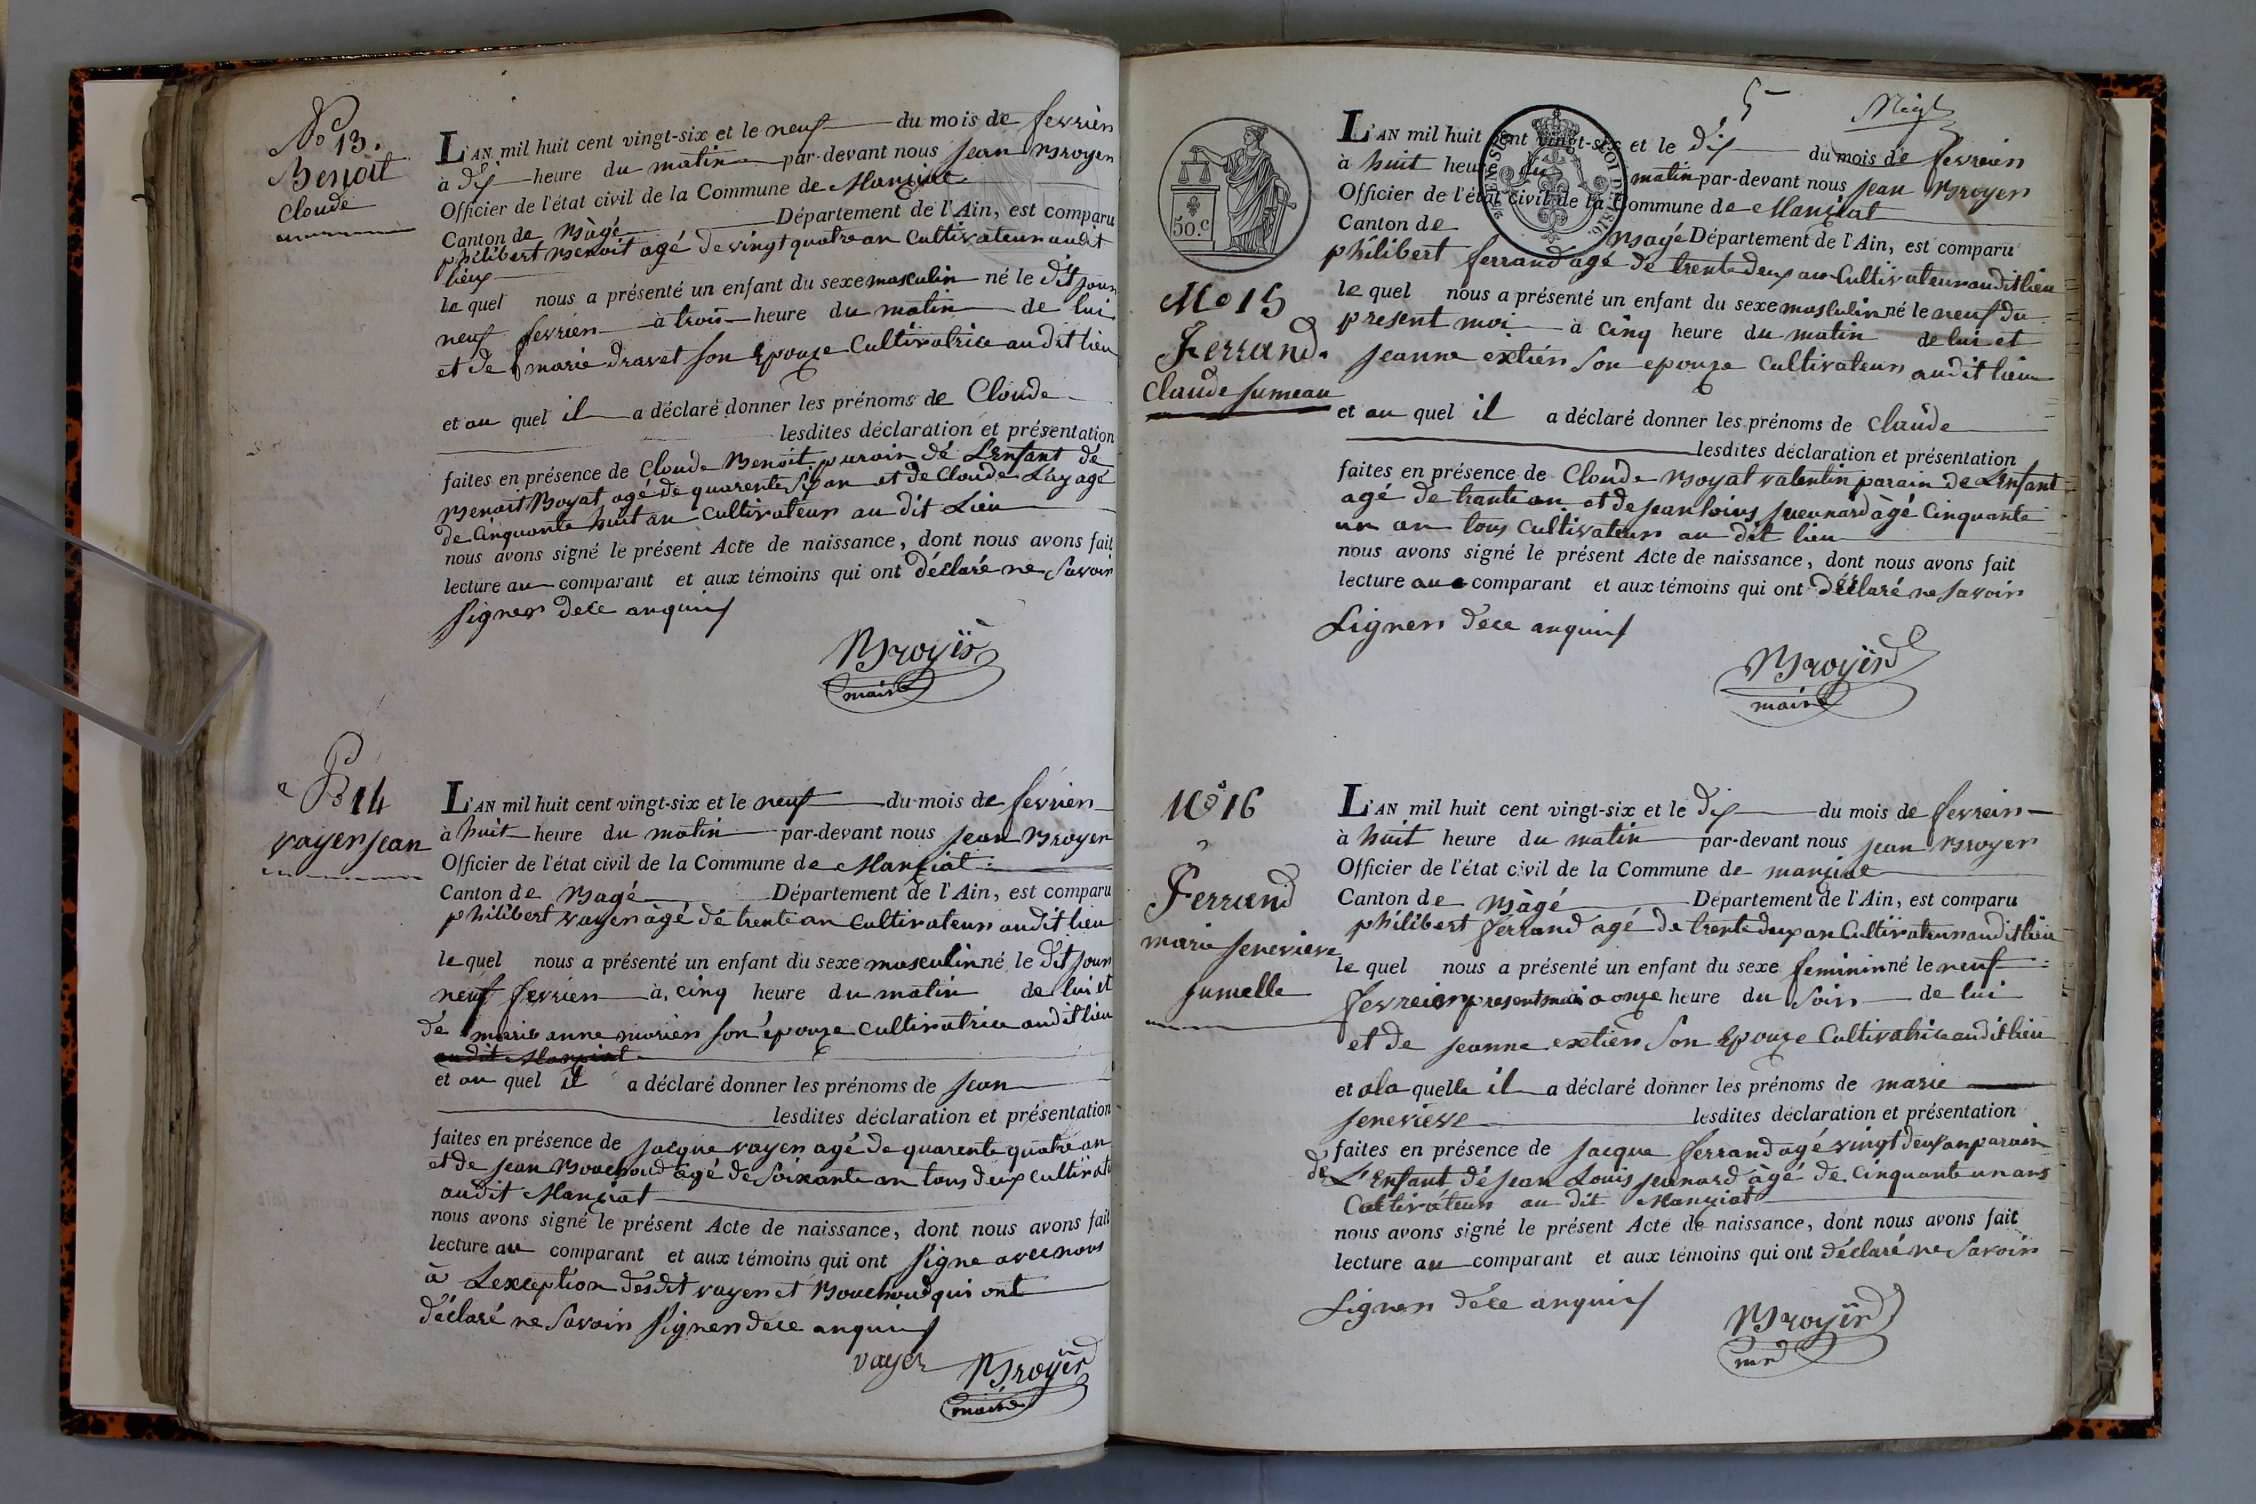 No 13.
Benoit
Cloude
L'AN mil huit cent vingt-six et le neuf du mois de fevrier
à dix heure du matin par-devant nous Jean Broyer
Officier de l'état civil de la Commune de Manziat
Canton de Bâgé Département de l'Ain, est comparu
philibert Benoit agé de vingt quatre an Cultivateur audit
lieux
le quel nous a présenté un enfant du sexe masculin né le dit jour
neuf fevrier à trois heure du matin de lui
et de marie dravet son Epouze Cultivatrice au dit lieu
et au quel il a déclaré donner les prénoms de Cloude
lesdites déclaration et présentation
faites en présence de Cloude Benoit parain de L'Enfant de
Benoit Boyat agé de quarente six an et de Cloude Lay agé
de Cinquante huit an Cultivateur au dit Lieu
nous avons signé le présent Acte de naissance, dont nous avons fait
lecture au comparant et aux témoins qui ont déclaré ne Savoir
signer dece anquis
Broyer
maire
14
vayer jean
L'AN mil huit cent vingt-six et le neuf du mois de février
à huit heure du matin par-devant nous jean Broyer
Officier de l'état civil de la Commune de Manziat
Canton de Bagé Département de l'Ain, est comparu
philibert vayer àgé de trente an Cultivateur audit lieu
le quel nous a présenté un enfant du sexe masculin né le dit jour
neuf fevrier à cinq heure du matin de lui et
de marie anne morier son épouze cultivatrice audit lieu
audit Manziat
et au quel il a déclaré donner les prénoms de jean
lesdites déclaration et présentation
faites en présence de jacque vayer agé de quarente quatre an
et de jean Bouchoud àgé de Soixante an tous deux cultivat
audit Manziat
nous avons signé le présent Acte de naissance, dont nous avons fait
lecture au comparant et aux témoins qui ont signe avec nous
à Lexception desdit vayer et Bouchoud qui ont
déclaré ne Savoir Signer dece anquis
vayer Broyer
maire
5
50.c
L'AN mil huit cent vingt-six et le dix du mois de fevreier
à huit heure du matin par-devant nous jean Broyer
Officier de l'état civil de la Commune de Manziat
Canton de Bagé Département de l'Ain, est comparu
philibert ferrand agé de trente deux an Cultivateur audit lieu
No 15
Ferrand
Claude jumeau
le quel nous a présenté un enfant du sexe masculin né le neuf du
present moi à cinq heure du matin de lui et
jeanne extier son epouze cultivateur audit lieu
et au quel il a déclaré donner les prénoms de claude
lesdites déclaration et présentation
faites en présence de Cloude Boyat valentin parain de L'Enfant
agé de trante an et de jean loius jeunard àgé Cinquante
un an tous Cultivateur au dit lieu
nous avons signé le présent Acte de naissance, dont nous avons fait
lecture au comparant et aux témoins qui ont déclaré ne savoir
Signer dece anquis
Broyer
maire
No 16
Ferrand
marie jenevieve
jumelle
L'AN mil huit cent vingt-six et le dix du mois de fevreier
à huit heure du matin par-devant nous jean Broyer
Officier de l'état civil de la Commune de manziat
Canton de Bàgé Département de l'Ain, est comparu
philibert ferrand agé de trente deux an Cultivateur audit lieu
le quel nous a présenté un enfant du sexe feminin né le neuf
fevreier present moi a onze heure du Soir de lui
et de jeanne extier Son Epouze Cultivatrice audit lieu
et ala quelle il a déclaré donner les prénoms de marie
jenevieve lesdites déclaration et présentation
faites en présence de jacque ferrand agé vingt deux an parain
de L'Enfant dé jean Louis jeunard àgé de Cinquante un ans
Cultivateur au dit Manziat
nous avons signé le présent Acte de naissance, dont nous avons fait
lecture au comparant et aux témoins qui ont déclaré ne Savoir
Signer dece anquis
Broyer